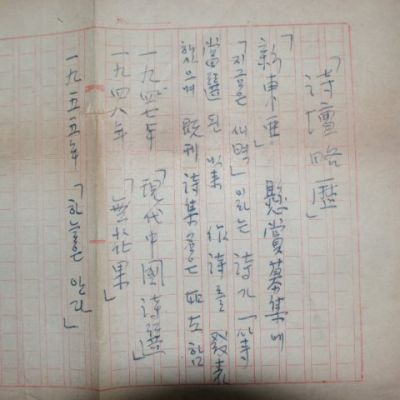 「詩壇略歷」
「新東亞」 懸賞募集에
「지금은 새벽」이라는 詩가 一等
當選된 以來 詩를 發表
했으며 旣刊詩集은 如左함
一九四七年 「現代中國詩選」
一九四八年 「無花果」
一九五五年 「하늘은 안다」